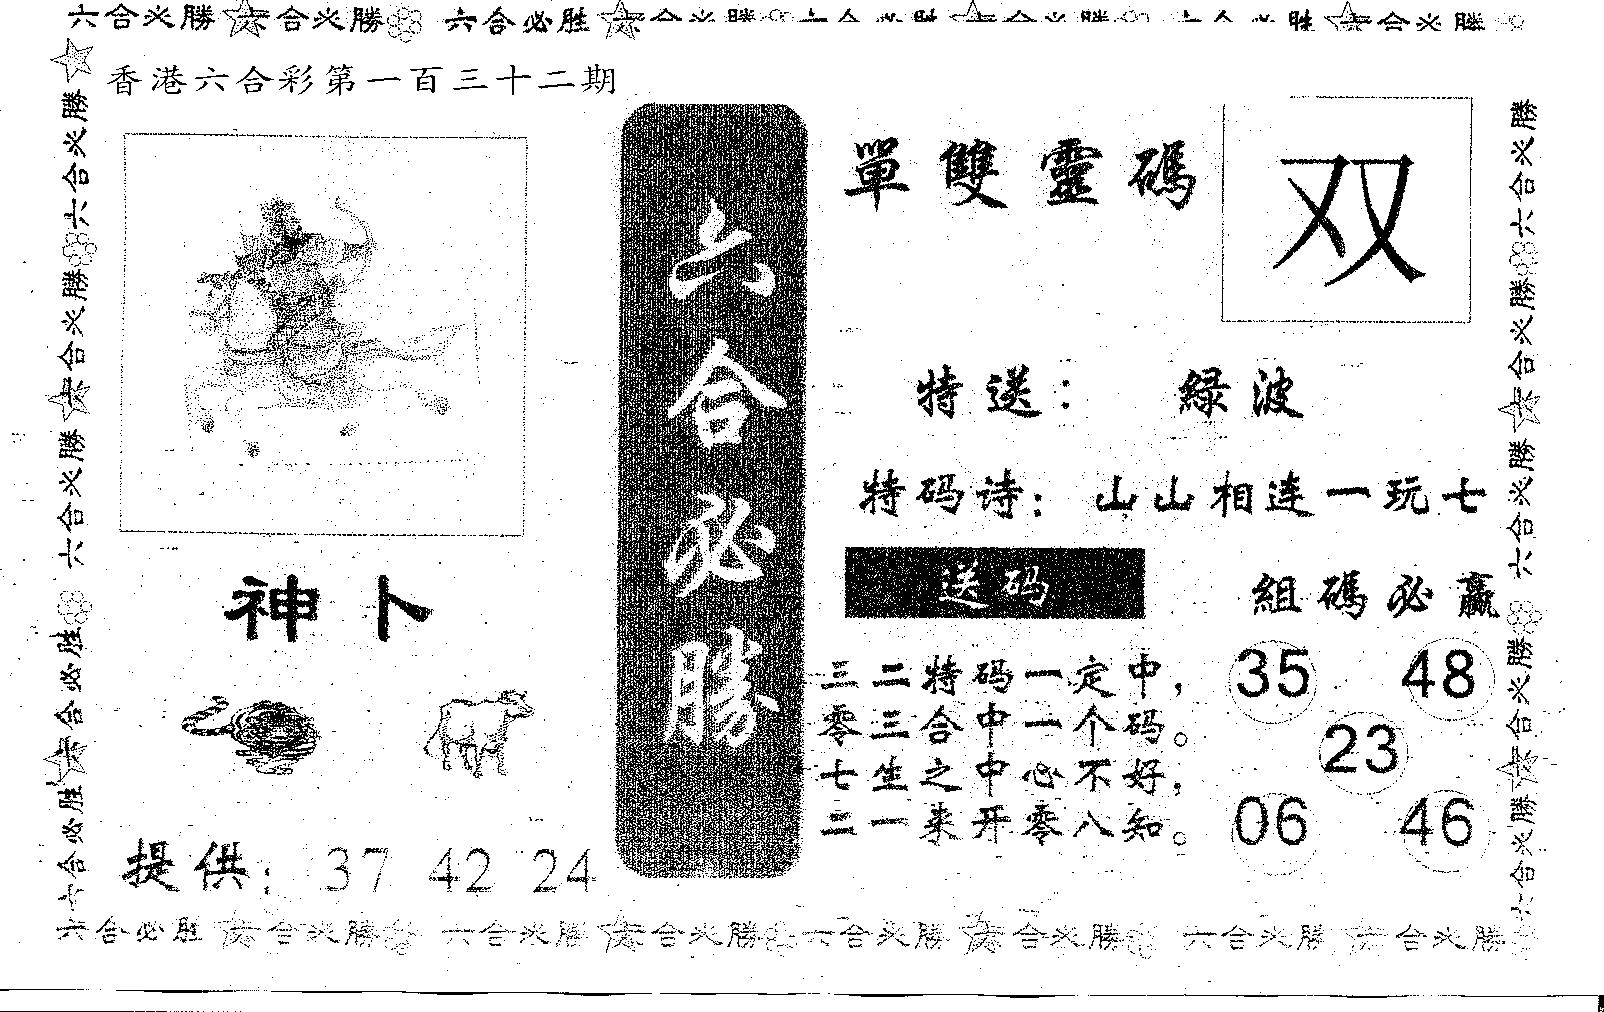 六合必勝 六合必勝 六合必胜 六合必勝 六合必胜 六合必勝
香港六合彩第一百三十二期
六合必勝
單雙靈碼
双
特送： 緑波
特码诗：山山相连一玩七
送码
組碼必贏
三二特码一定中，
零三合中一个码。
七生之中心不好，
二一来开零八知。
35 48
23
06 46
神卜
提供：37 42 24
六合必勝 六合必勝 六合必勝 六合必胜 六合必胜
六合必勝 六合必勝 六合必勝 六合必勝 六合必勝
六合必胜 六合必勝 六合必勝 六合必勝 六合必勝 六合必勝 六合必勝 六合必勝